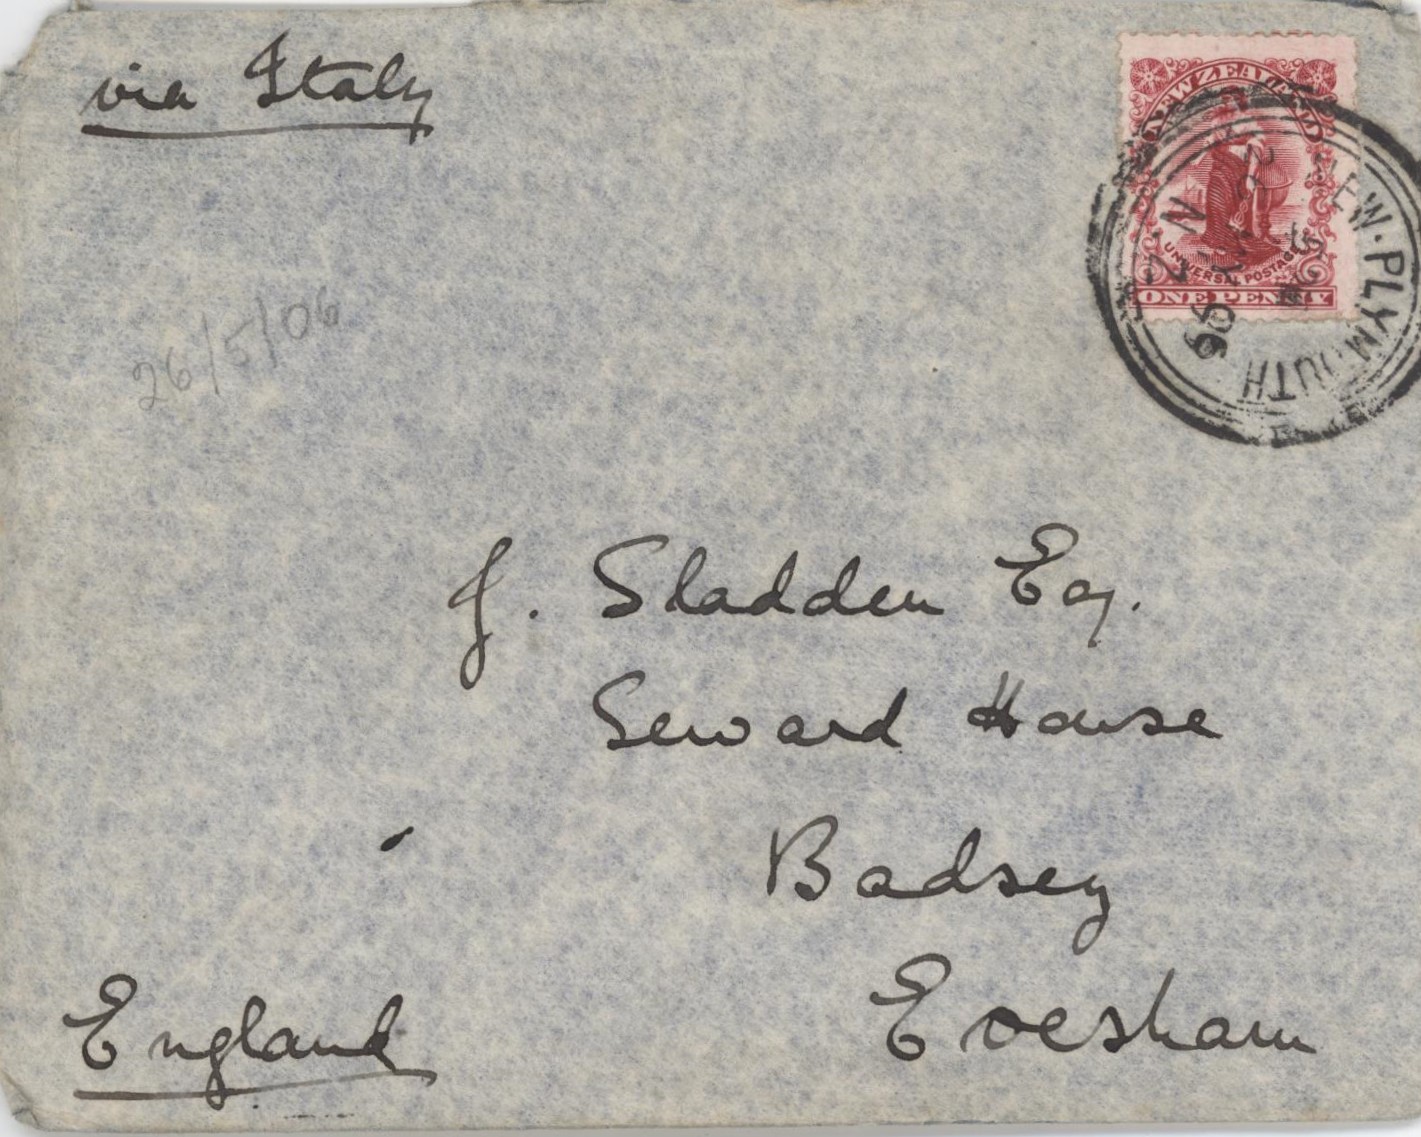 via Italy
NEW ZEALAND
UNIVERSAL POSTAGE
ONE PENNY
NEW·PLYMOUTH
N.Z
26/5/06
J. Sladden Esq.
Seward House
Badsey
Evesham
England